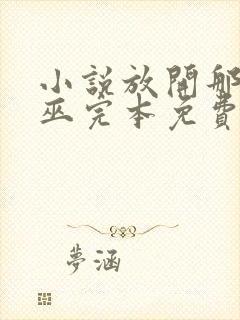 小說放開那
巫完本免費
夢涵